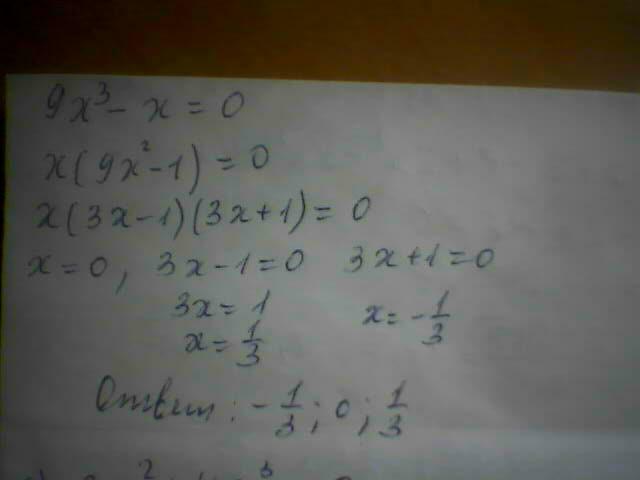 9x³ - x = 0
x(9x² - 1) = 0
x(3x - 1)(3x + 1) = 0
x = 0, 3x - 1 = 0 3x + 1 = 0
3x = 1
x = 1/3 x = -1/3
Ответ: -1/3; 0; 1/3